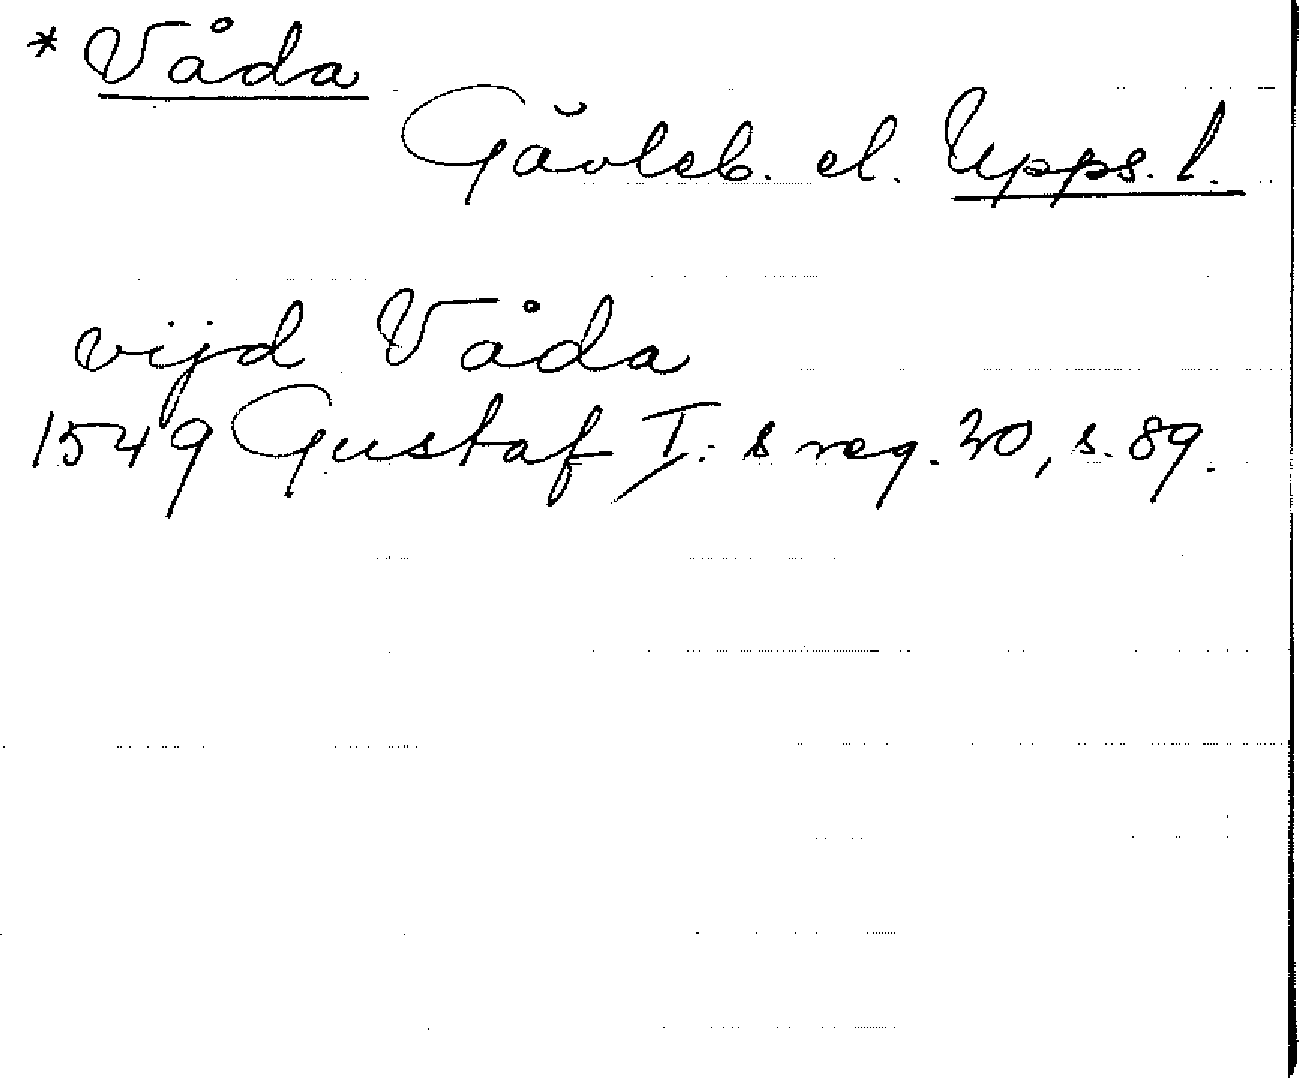 * Våda
Gävleb. el. Upps. l.
vijd Våda
1549 Gustaf I:s reg. 20, s. 89.